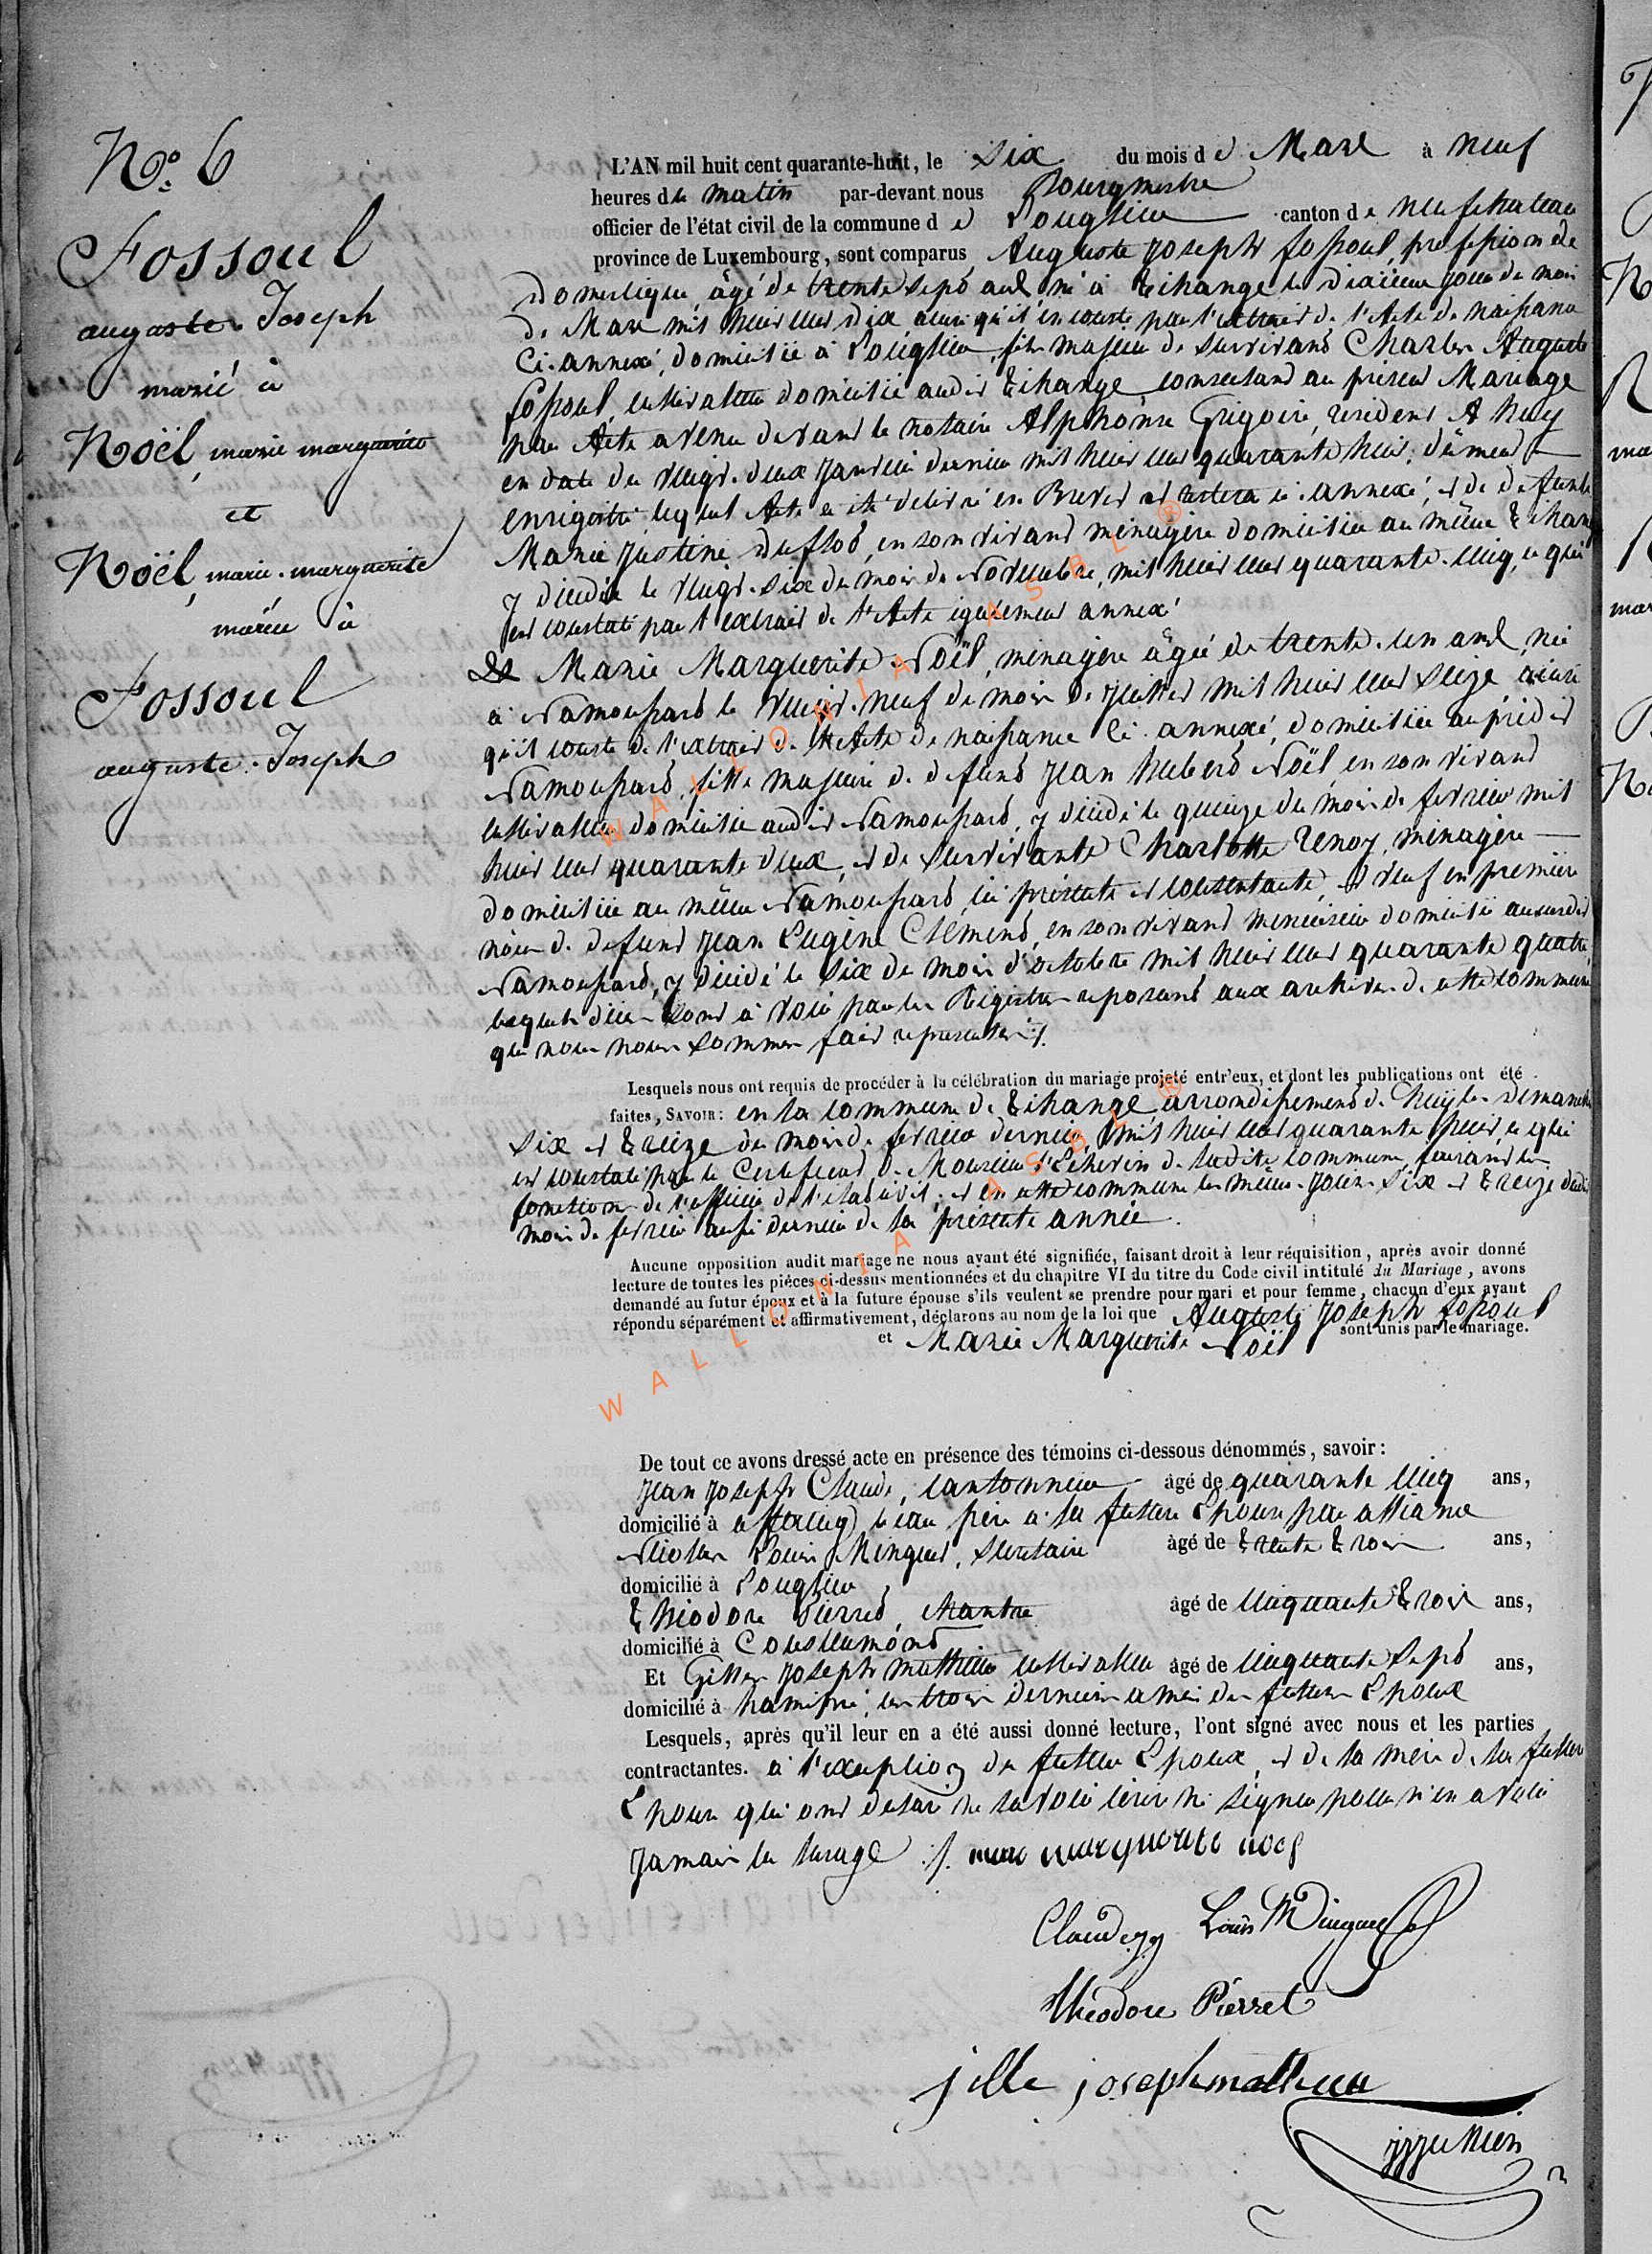 No. 6
Fossoul
auguste. Joseph
marié à
Noël, marie marguerite
et
Noël, marie. marguerite
mariée à
Fossoul
auguste. Joseph
L'AN mil huit cent quarante-huit, le six du mois d e Mars à neuf
heures du matin par-devant nous Bourgmestre
officier de l'état civil de la commune d e Longlier canton de neufchateau
province de Luxembourg, sont comparus Auguste Joseph Fossoul, profession de
Domestique, âgé de trente sept ans né à Tihange le dixième jour du mois
de Mars mil huit cent dix, ainsi qu'il en conste par l'extrait de l'Acte de naissance
Ci-annexé, domicilié à Longlier, fils majeur de survivant Charles Auguste
Fossoul, cultivateur domicilié audit Tihange consentant au présent Mariage
par Acte avenu devant le notaire Alphonse Grégoire, resident A huy
en date du vingt-deux janvier dernier mil huit cent quarante huit, dûment
enrigistré lequel Acte a été délivré en Brevet et restera ci-annexé, et de defunte
Marie Justine Duflot, en son vivant ménagère domiciliée au même Tihange
y décédée le vingt-six du mois de Novembre, mil huit cent quarante-cinq, ce qui
est constaté par l'extrait de l'Acte également annexé
Et Marie Marguerite Noël, ménagère âgée de trente-un ans, née
à Namoussart le vingt-neuf du mois de juillet mil huit cent seize ainsi
qu'il conste de l'extrait de l'Acte de naissance ci-annexé, domiciliée au prédit
Namoussart, fille majeure de defunt Jean Hubert Noël, en son vivant
cultivateur domicilié audit Namoussart, y décédé le quinze du mois de fevrier mil
huit cent quarante deux, et de survivante Charlotte Renoy, ménagère
domiciliée au même Namoussart, ici présente et consentante, et veuf en première
nôce de defunt Jean Eugène Clément, en son vivant menuisier domicilié au susdit
Namoussart, y décédé le six du mois d'octobre mil huit cent quarante quatre,
lesquels décès sont à voir par les Registres reposant aux archives de cette commune
que nous nous sommes fait représenter ./.
Lesquels nous ont requis de procéder à la célébration du mariage projeté entr'eux, et dont les publications ont été
faites, SAVOIR: en la commune de Tihange arrondissement de huy les dimanches
six et treize du mois de fevrier dernier mil huit cent quarante huit, ce qui
est constaté par le Certificat de Monsieur l'Echevin de ladite commune, faisant les
fonctions de l'officier de l'état civil; et en cette commune les mêmes jours six et treize dudit
mois de fevrier aussi dernier de la présente année.
Aucune opposition audit mariage ne nous ayant été signifiée, faisant droit à leur réquisition, après avoir donné
lecture de toutes les pièces ci-dessus mentionnées et du chapitre VI du titre du Code civil intitulé du Mariage, avons
demandé au futur époux et à la future épouse s'ils veulent se prendre pour mari et pour femme, chacun d'eux ayant
répondu séparément et affirmativement, déclarons au nom de la loi que Auguste Joseph Fossoul
et Marie Marguerite Noël sont unis par le mariage.
De tout ce avons dressé acte en présence des témoins ci-dessous dénommés, savoir:
Jean Joseph Claude, cantonnier âgé de quarante cinq ans,
domicilié à beau père à la future Epouse par alliance
Nicolas Louis Minguet, secrétaire âgé de trente trois ans,
domicilié à Longlier
Théodore Pierret, chantre âgé de cinquante trois ans,
domicilié à Cousteumont
Et Gilles Joseph Mathieu cultivateur âgé de cinquante sept ans,
domicilié à hamipré, les trois derniers amis des futurs Epoux
Lesquels, après qu'il leur en a été aussi donné lecture, l'ont signé avec nous et les parties
contractantes. à l'exception du futur Epoux, et de la mère de la future
Epouse qui ont déclaré ne savoir écrire ni signer pour n'en avoir
jamais eu l'usage ./. marie marguerite noel
Claude jj Louis Minguet
Théodore Pierret
jille joseph mathieu
WALLONIA ASBL ®
WALLONIA ASBL ®